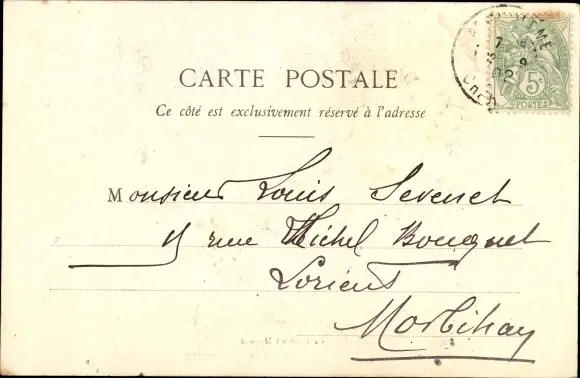 CARTE POSTALE
Ce côté est exclusivement réservé à l'adresse
5c
POSTES
Monsieur Louis Sevenet
rue Michel Bouquet
Lorient
Morbihan